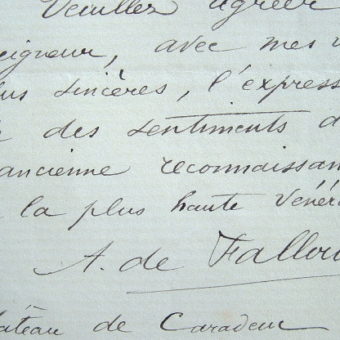 Veuillez agréer
eigneur, avec mes v
us sincères, l'express
des sentiments d
ancienne reconnaissan
la plus haute vénér
A. de Fallou
âteau de Caradeuc